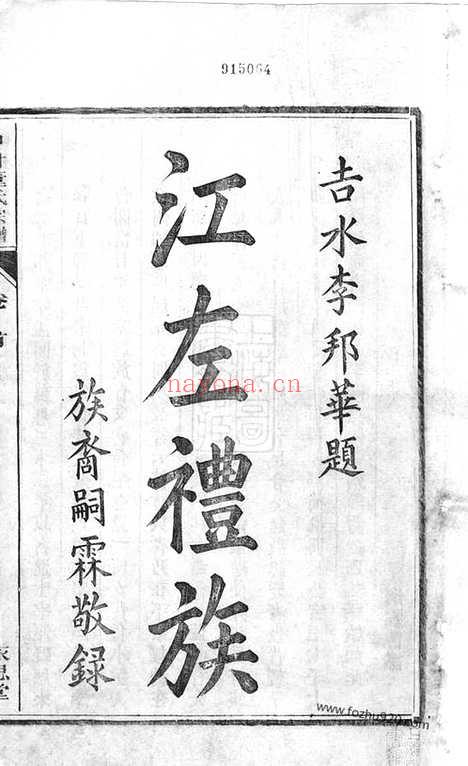 915064
吉水李邦華題
江左禮族
族裔嗣霖敬錄
卷首
nayona.cn
www.fozhu920.com